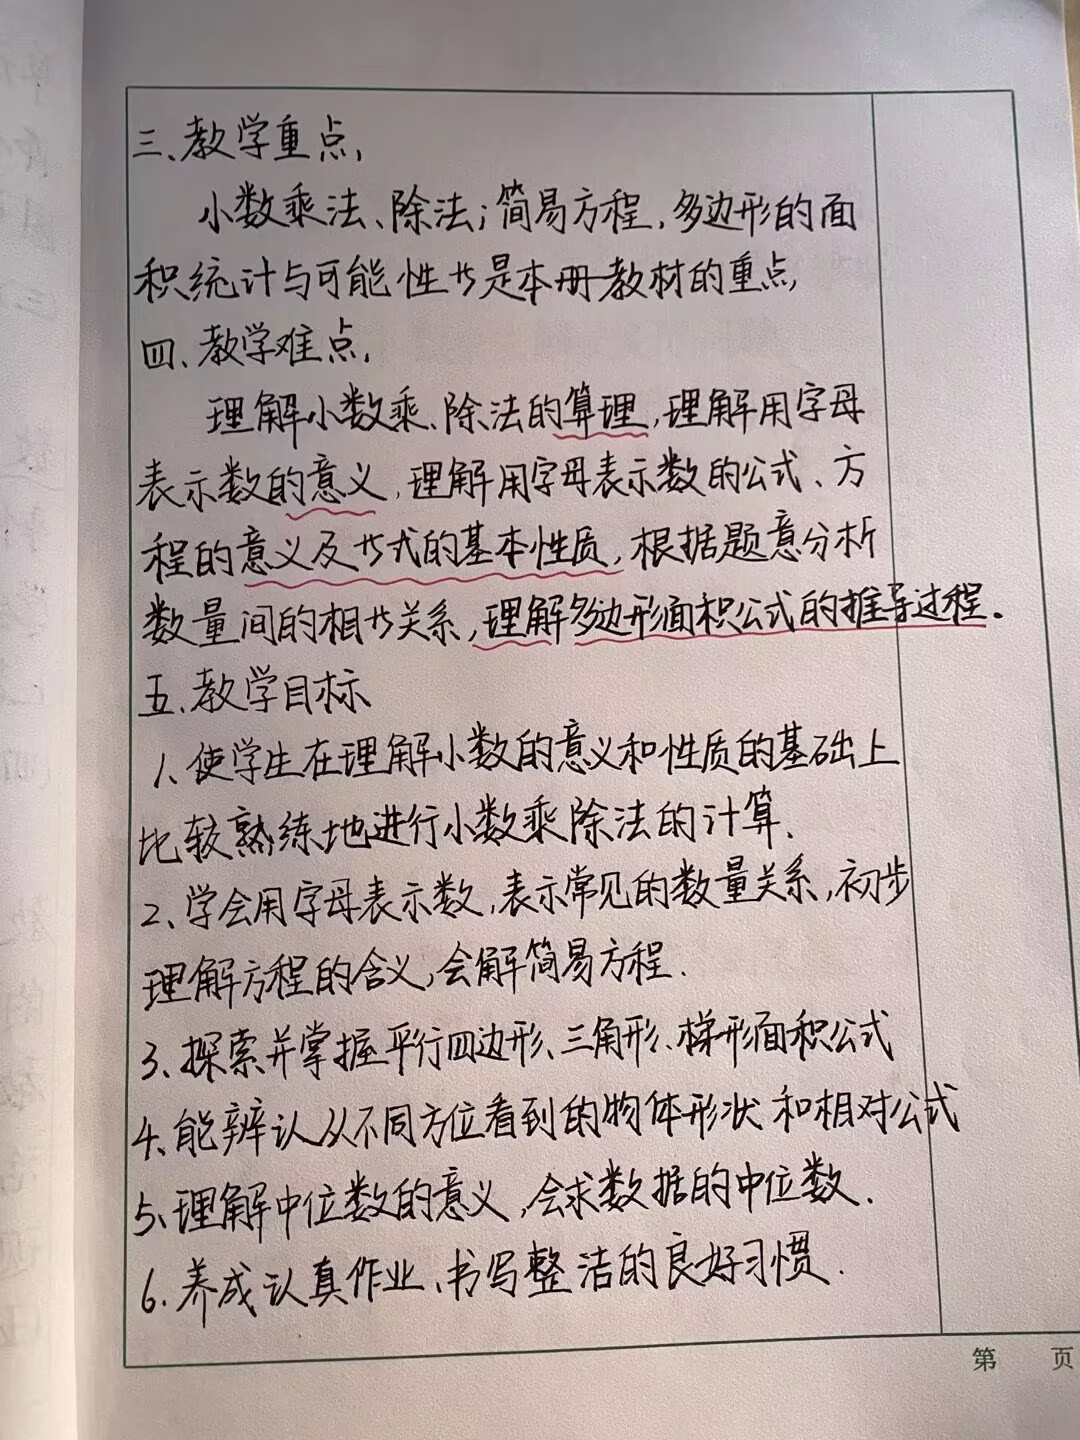 三、教学重点,
小数乘法、除法;简易方程,多边形的面
积统计与可能性等是本册教材的重点,
四、教学难点,
理解小数乘、除法的算理,理解用字母
表示数的意义,理解用字母表示数的公式、方
程的意义及等式的基本性质,根据题意分析
数量间的相等关系,理解多边形面积公式的推导过程。
五、教学目标
1、使学生在理解小数的意义和性质的基础上
比较熟练地进行小数乘除法的计算.
2、学会用字母表示数,表示常见的数量关系,初步
理解方程的含义,会解简易方程.
3、探索并掌握平行四边形、三角形、梯形面积公式
4、能辨认从不同方位看到的物体形状和相对公式
5、理解中位数的意义,会求数据的中位数.
6、养成认真作业、书写整洁的良好习惯.
第 页